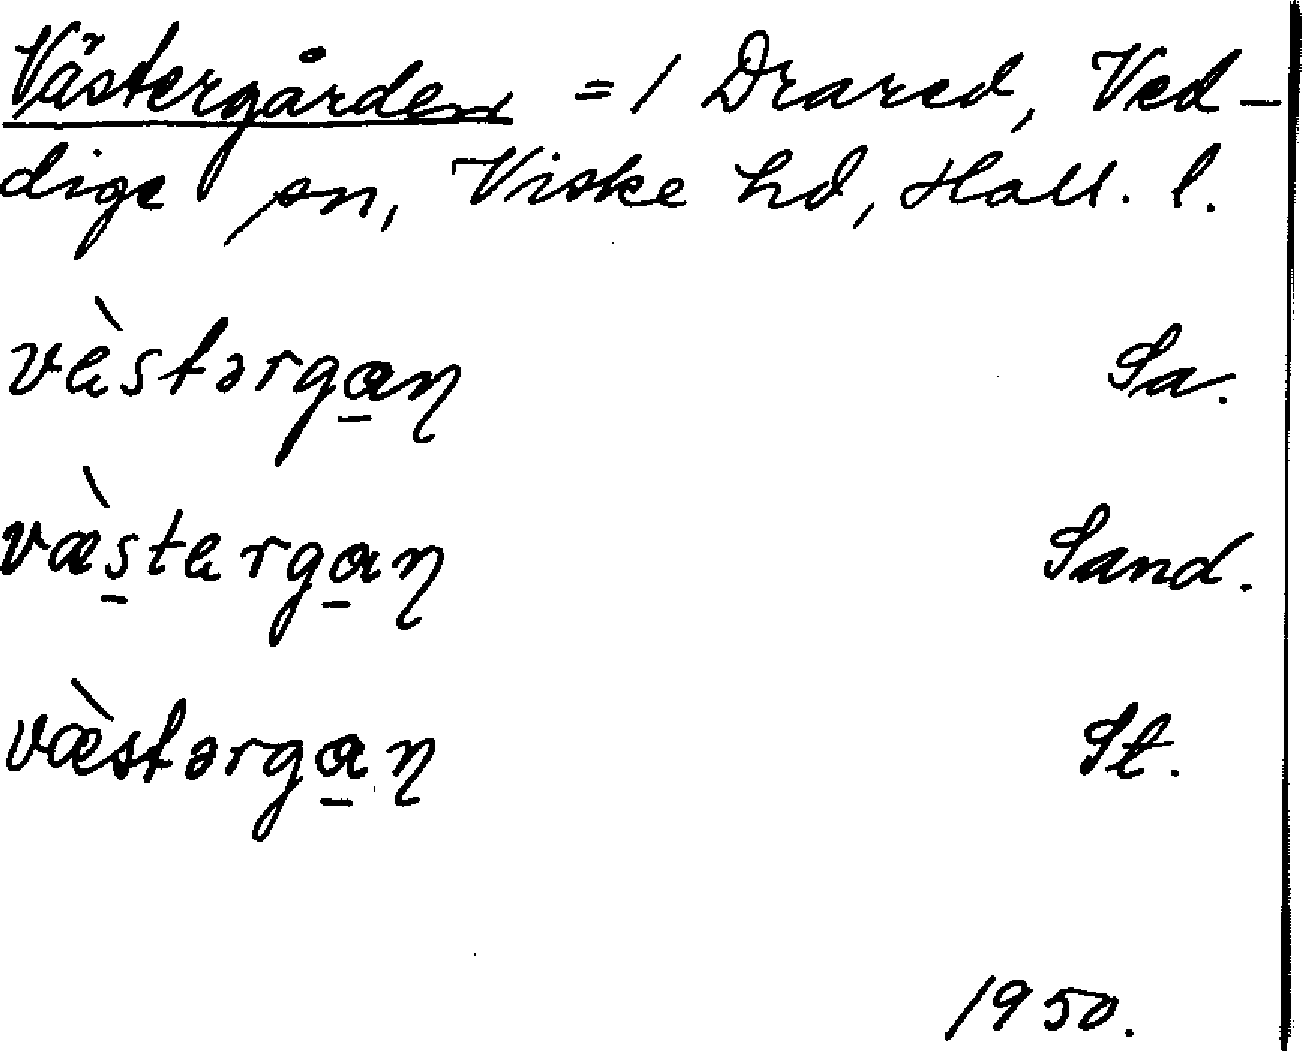 Västergården = 1 Drared, Ved-
dige sn, Viske hd, Hall. l.
vèstərgan̥ Sa.
væ̀stergan̥ Sand.
væ̀stərgan̥ St.
1950.